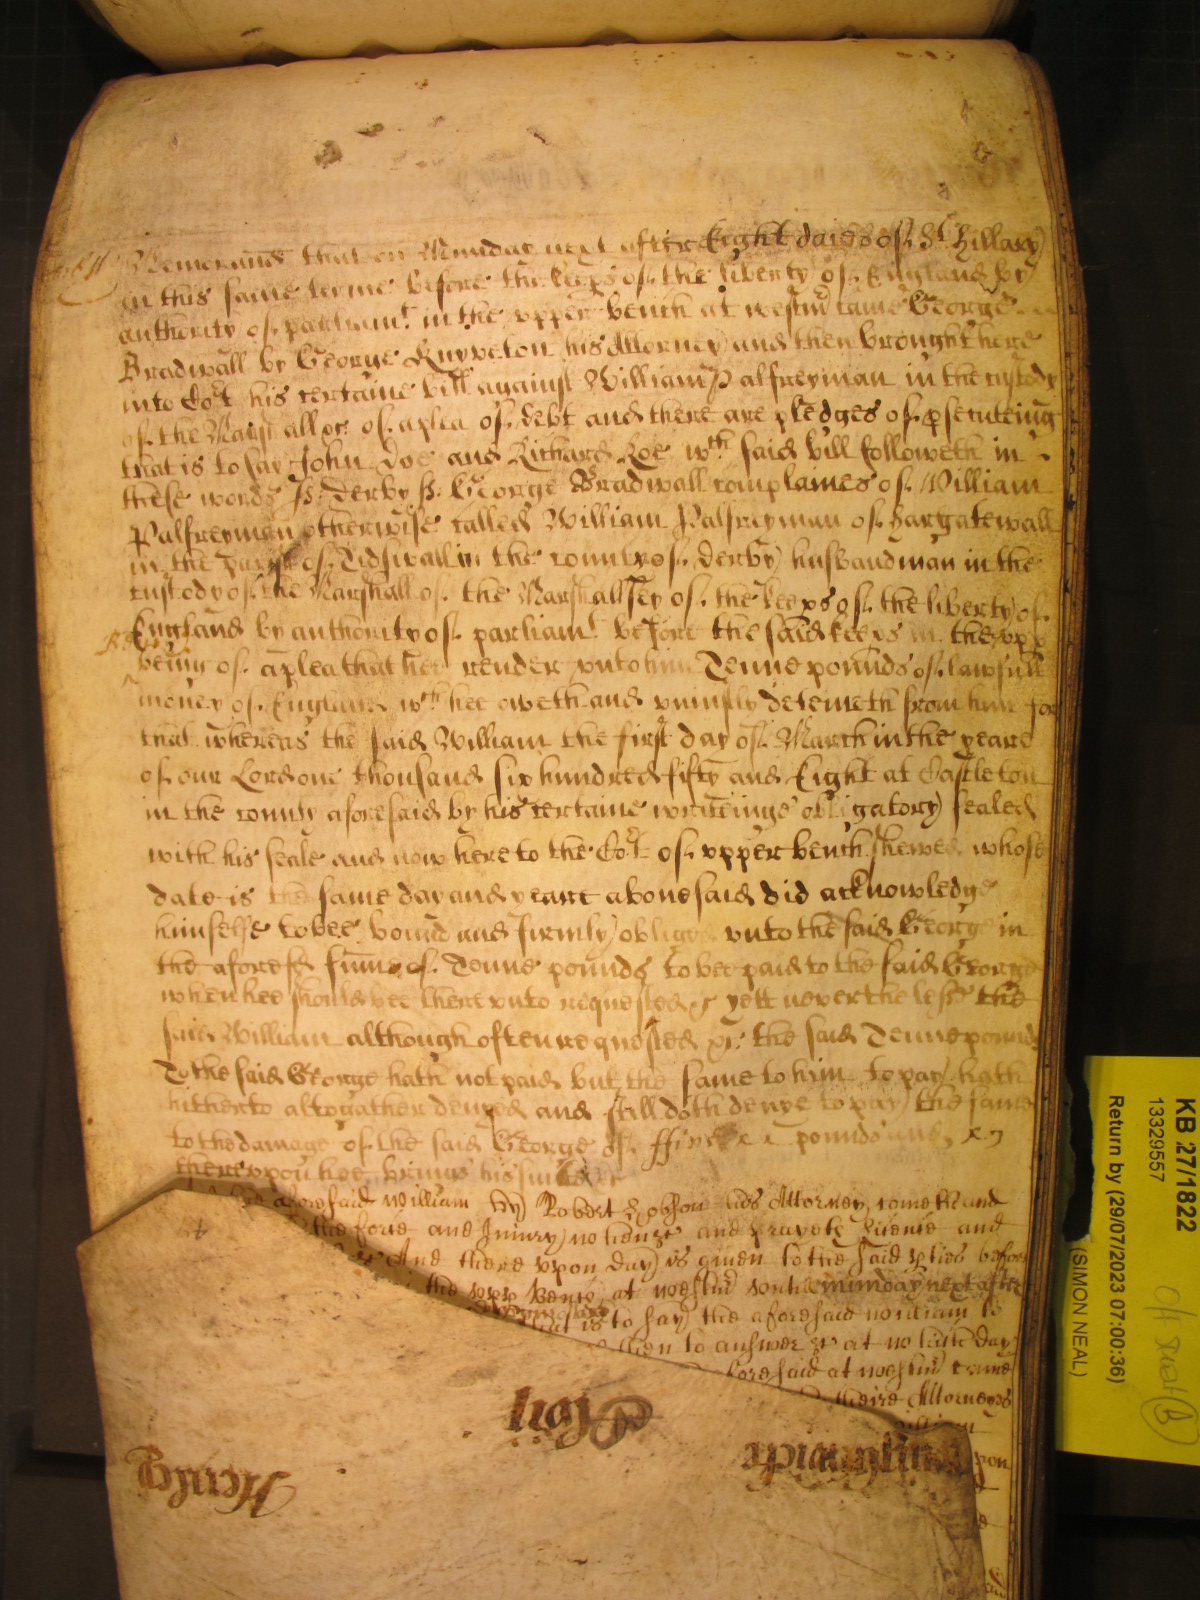 Memorand that on Munday next after Eight daies of St Hillary
in this same terme before the keeps of the liberty of England by
authority of parliamt in the upper bench at westmr came George
Bradwall by George Knyveton his Attorney and then brought here
into Cort his certaine bill against William Palfreyman in the custody
of the Marshall &c of a plea of debt and there are pledges of psecuteing
that is to say John Doe and Richard Roe wch said bill followeth in
these words ss Derby ss George Bradwall complaines of William
Palfreyman otherwise called William Palfreyman of hargatewall
in the parish of Tidswall in the county of derby husbandman in the
custody of the Marshall of the Marshallsey of the keeps of the liberty of
England by authority of parliamt before the said keeps in the upp
being of a plea that hee render unto him Tenne pounds of lawfull
money of England wch hee oweth and uniustly deteineth from him for
that whereas the said William the first day of March in the yeare
of our Lord one thousand six hundred fifty and Eight at Castleton
in the county aforesaid by his certaine writeinge obligatory sealed
with his seale and now here to the Cort of upper bench shewed whose
date is the same day and yeare abovesaid did acknowledge
himselfe to bee bound and firmly obliged unto the said George in
the aforesd summe of Tenne pounds to bee paid to the said George
when hee should bee thereunto requested & yett neverthelesse the
said William although often requested &c the said Tenne pounds
To the said George hath not paid but the same to him to pay hath
hitherto altogather denyed and still doth denye to pay the same
to the damage of the said George of pounds and
thereupon hee brings his suite &c
aforesaid William by Robert his Attorney cometh and
the force and Iniury when &c and and
&c And thereupon day is given to the said pties before
the upp Bench at westmr untill munday next after
that is to say the aforesaid william to
then to answer &c at which day
aforesaid at westmr came
theire Attorneys
Roll
Henley
KB 27/1822
13329557
(SIMON NEAL)
Return by (29/07/2023 07:00:36)